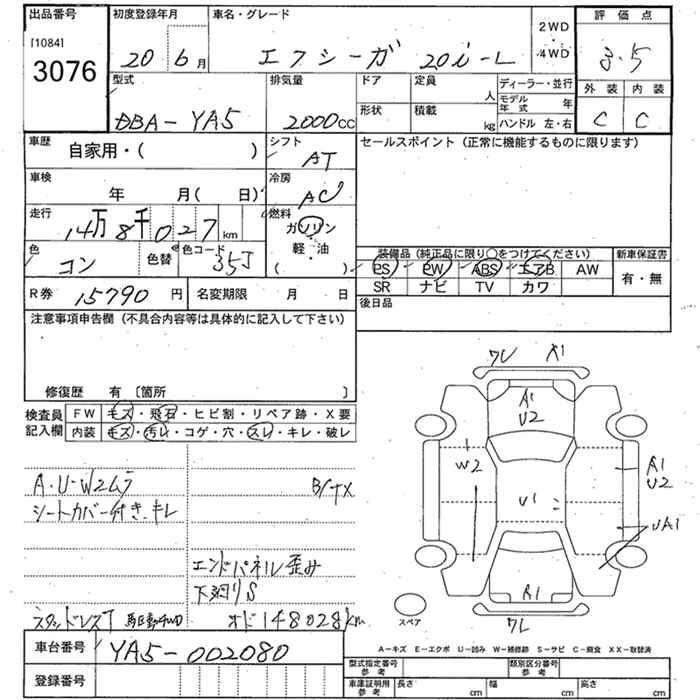 出品番号
[1084]
3076
初度登録年月
20年6月
車名・グレード
エクシーガ 20i-L
2WD
・
4WD
評価点
3.5
外装 内装
C C
型式
DBA-YA5
排気量
2000cc
ドア
定員
人
形状
積載
kg
ディーラー・並行
モデル年式 年
ハンドル 左・右
車歴
自家用・( )
シフト
AT
車検
年 月( 日)
冷房
AC
走行
14万8千027km
燃料
ガソリン
・
軽・油
( )
色
コン
色替
色コード
35J
セールスポイント(正常に機能するものに限ります)
装備品(純正品に限り○をつけてください)
PS PW ABS エアB AW
SR ナビ TV カワ
新車保証書
有・無
R券 15790円
名変期限 月 日
後日品
注意事項申告欄(不具合内容等は具体的に記入して下さい)
修復歴 有〔箇所 〕
検査員
記入欄
FW キズ・飛石・ヒビ割・リペア跡・X要
内装 キズ・汚レ・コゲ・穴・スレ・キレ・破レ
A・U-W2ムラ
シートカバー付き、キレ
エンドパネル歪み
下廻りS
スタッドレスT
オド148028km
車台番号
YA5-002080
登録番号
ワレ A1
A1
U2
W2
U1
A1
U2
UA1
A1
ワレ
スペア
A-キズ E-エクボ U-凹み W-補修跡 S-サビ C-腐食 XX-取替済
型式指定番号
参考
類別区分番号
参考
車庫証明用
参考
長さ cm
幅 cm
高さ cm